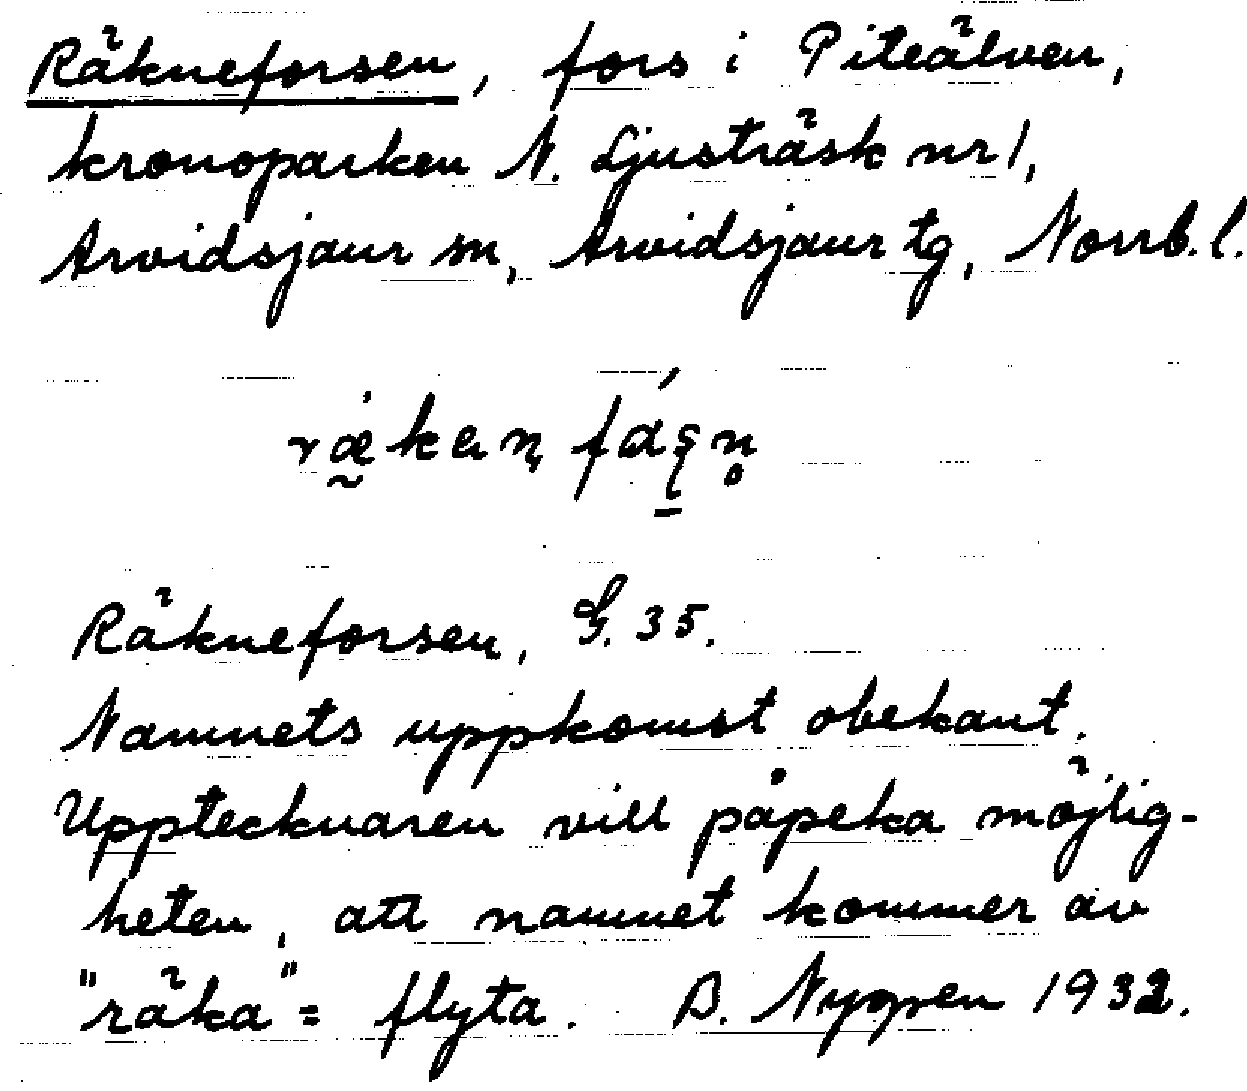 Räkneforsen, fors i Piteälven,
kronoparken N. Ljusträsk nr 1,
Arvidsjaur sn, Arvidsjaur tg, Norrb. l.
Räkneforsen, G. 35.
Namnets uppkomst obekant.
Upptecknaren vill påpeka möjlig-
heten, att namnet kommer av
"räka" = flyta.
1932.